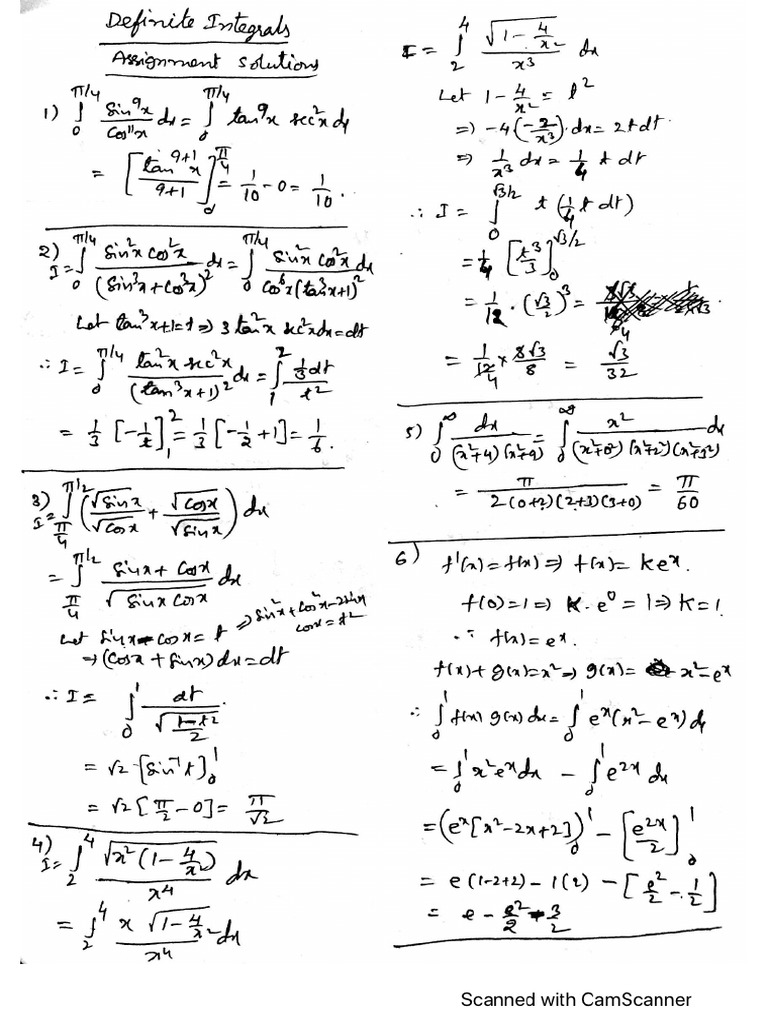 Definite Integrals
Assignment solutions
1) ∫_0^{π/4} sin⁹x/cos¹¹x dx = ∫_0^{π/4} tan⁹x sec²x dx
= [tan^{9+1}x/(9+1)]_0^{π/4} = 1/10 - 0 = 1/10.
2) I = ∫_0^{π/4} sin²x cos²x/(sin³x+cos³x)² dx = ∫_0^{π/4} sin²x cos²x/(cos⁶x(tan³x+1)²) dx
Let tan³x+1=t ⇒ 3tan²x sec²x dx=dt
∴ I = ∫_0^{π/4} tan²x sec²x/(tan³x+1)² dx = ∫_1^2 (1/3 dt)/t²
= 1/3 [-1/t]_1^2 = 1/3 [-1/2 + 1] = 1/6.
3) I = ∫_{π/4}^{π/2} (√sinx/√cosx + √cosx/√sinx) dx
= ∫_{π/4}^{π/2} (sinx + cosx)/√(sinx cosx) dx
Let sinx - cosx = t ⇒ sin²x + cos²x - 2sinx cosx = t²
⇒ (cosx + sinx) dx = dt
∴ I = ∫_0^1 dt/√((1-t²)/2)
= √2 [sin⁻¹t]_0^1
= √2 [π/2 - 0] = π/√2
4) I = ∫_2^4 √(x²(1 - 4/x²))/x⁴ dx
= ∫_2^4 x√(1 - 4/x²)/x⁴ dx
I = ∫_2^4 √(1 - 4/x²)/x³ dx
Let 1 - 4/x² = t²
⇒ -4(-2/x³).dx = 2t dt
⇒ 1/x³ dx = 1/4 t dt
∴ I = ∫_0^{√3/2} t (1/4 t dt)
= 1/4 [t³/3]_0^{√3/2}
= 1/12 · (√3/2)³ =
= 1/12 × 3√3/8 = √3/32
4
5) ∫_0^∞ dx/((x²+4)(x²+9)) = ∫_0^∞ x²/((x²+0²)(x²+2²)(x²+3²)) dx
= π/(2(0+2)(2+3)(3+0)) = π/60
6) f'(x) = f(x) ⇒ f(x) = ke^x.
f(0)=1 ⇒ k·e⁰ = 1 ⇒ k=1.
∴ f(x) = e^x.
f(x) + g(x) = x² ⇒ g(x) = x² - e^x
∴ ∫_0^1 f(x) g(x) dx = ∫_0^1 e^x(x² - e^x) dx
= ∫_0^1 x²e^x dx - ∫_0^1 e^{2x} dx
= (e^x[x² - 2x + 2])_0^1 - [e^{2x}/2]_0^1
= e(1-2+2) - 1(2) - [e²/2 - 1/2]
= e - e²/2 - 3/2
Scanned with CamScanner